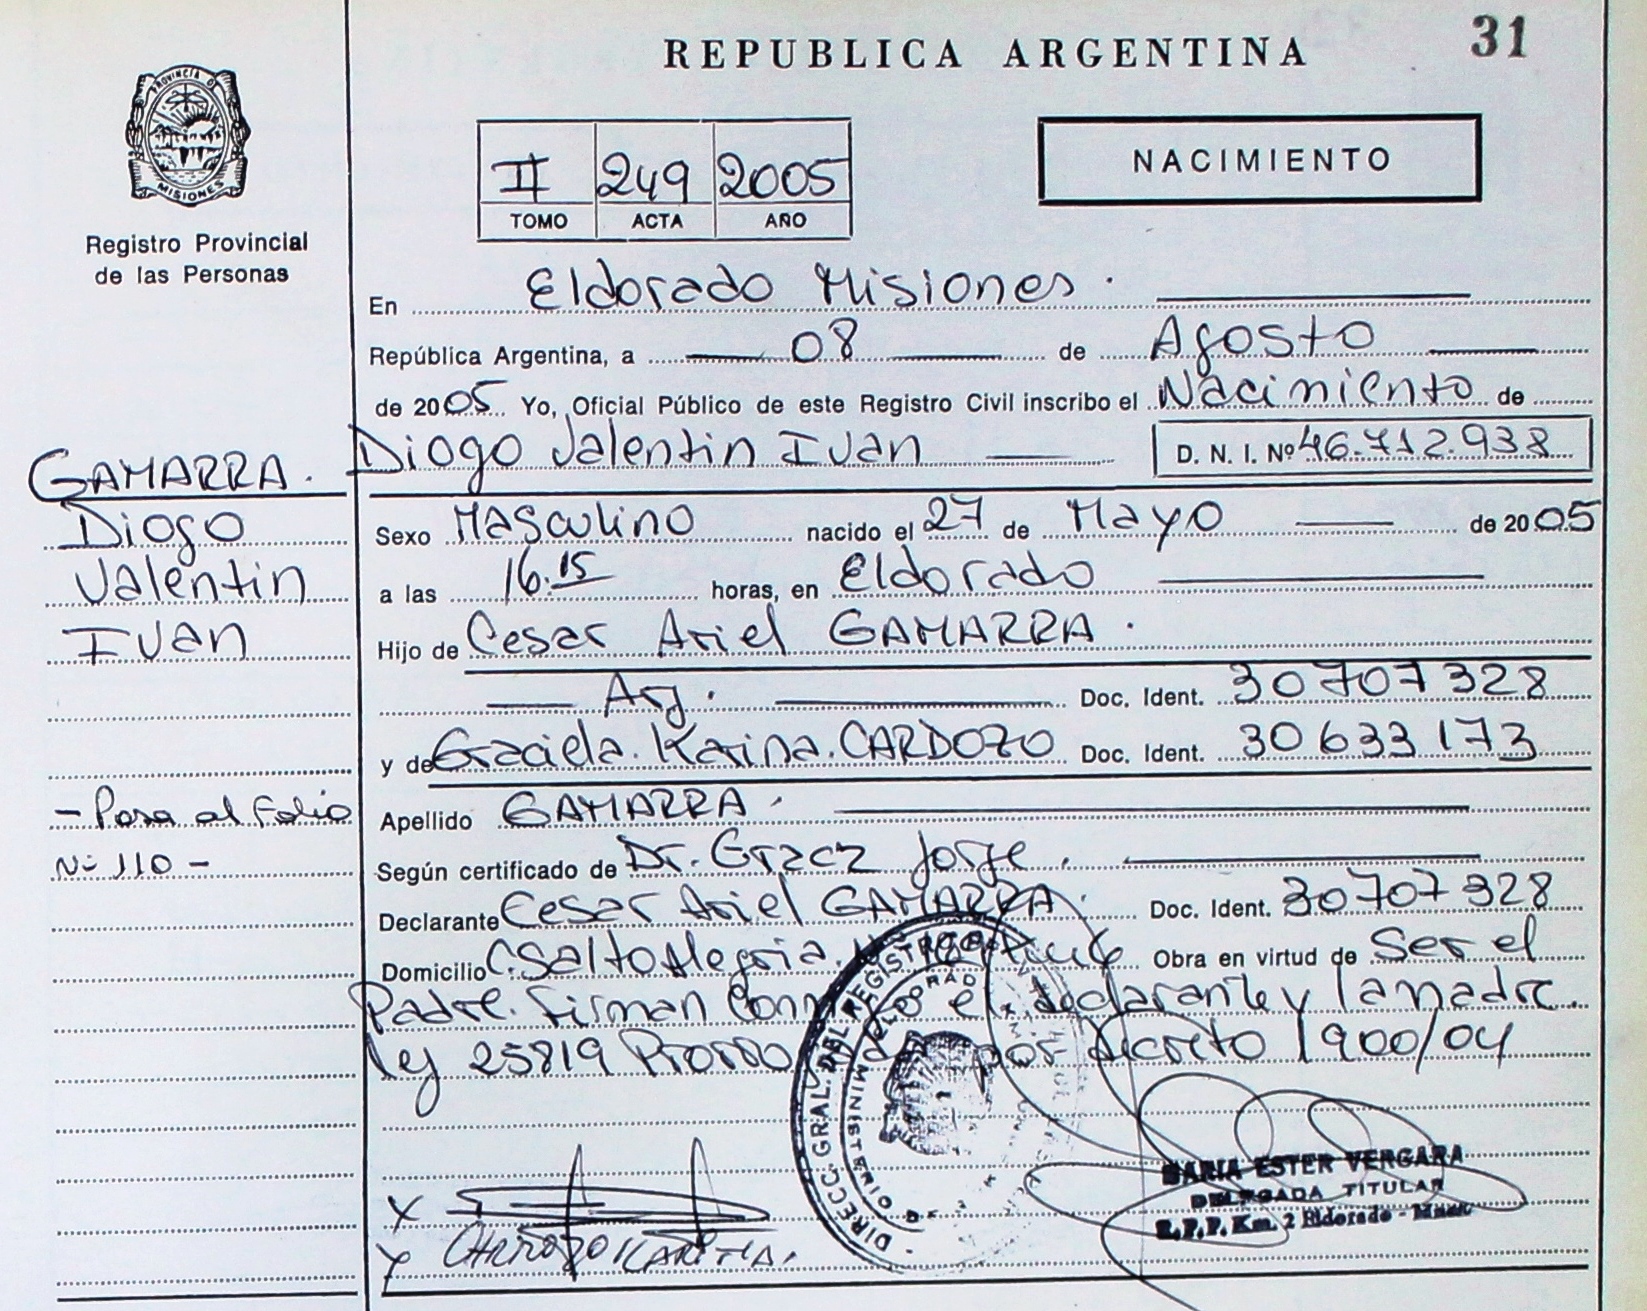 31
REPUBLICA ARGENTINA
PROVINCIA DE MISIONES
Registro Provincial
de las Personas
II 249 2005
TOMO ACTA AÑO
NACIMIENTO
En Eldorado Misiones.
República Argentina, a 08 de Agosto
de 2005 Yo, Oficial Público de este Registro Civil inscribo el Nacimiento de
Diogo Valentin Ivan D. N. I. Nº 46.712.938
GAMARRA.
Diogo
Valentin
Ivan
Sexo Masculino nacido el 27 de Mayo de 2005
a las 16:15 horas, en Eldorado
Hijo de Cesar Ariel GAMARRA.
Arg. Doc. Ident. 30707328
y de Graciela. Karina. CARDOZO Doc. Ident. 30633173
- Pasa al Folio
Nº 110 -
Apellido GAMARRA.
Según certificado de Dr. Jorge.
Declarante Cesar Ariel GAMARRA. Doc. Ident. 30707328
Domicilio C. Salto Alegria. Obra en virtud de Ser el
Padre. Firman el declarante y la madre.
ley 25819 por decreto 1900/04
DIRECC. GRAL. DEL REGISTRO
MINISTERIO DE
ELDORADO
MARIA ESTER VERGARA
DELEGADA TITULAR
R.P.P. Km. 2 Eldorado - Mnes
X
X CARDOZO KARINA.